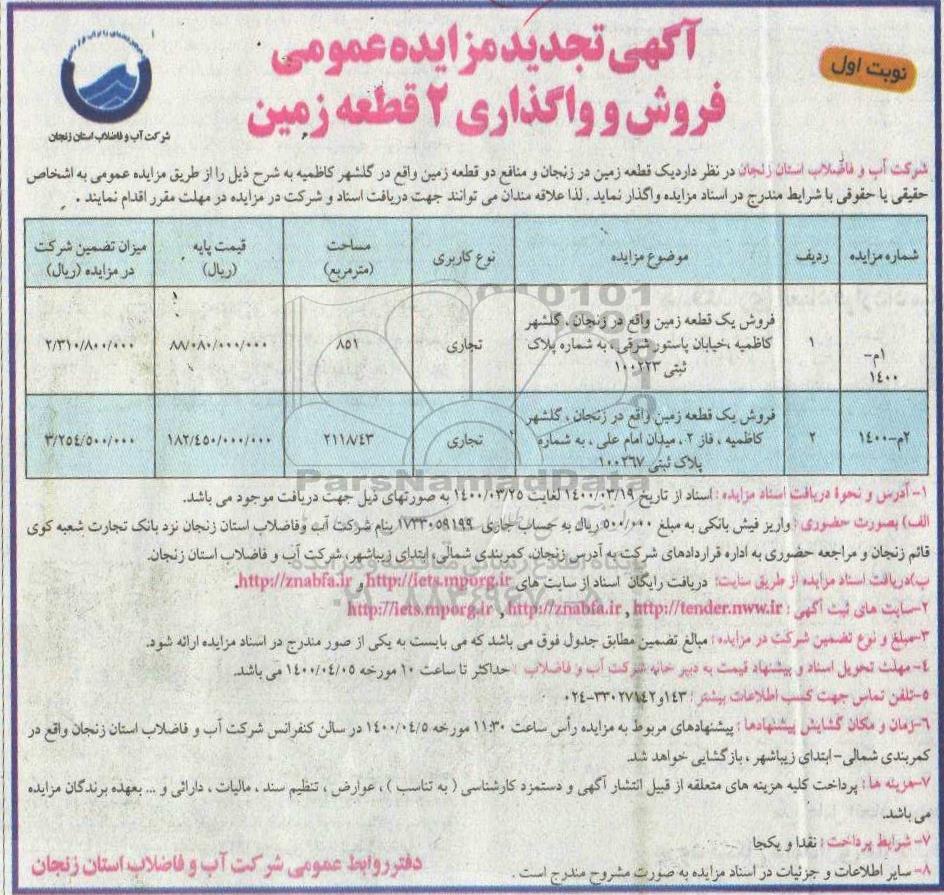 آگهی تجدید مزایده عمومی
نوبت اول
فروش و واگذاری ۲ قطعه زمین
شرکت آب و فاضلاب استان زنجان
شرکت آب و فاضلاب استان زنجان در نظر دارد یک قطعه زمین در زنجان و منافع دو قطعه زمین واقع در گلشهر کاظمیه به شرح ذیل را از طریق مزایده عمومی به اشخاص
حقیقی یا حقوقی با شرایط مندرج در اسناد مزایده واگذار نماید . لذا علاقه مندان می توانند جهت دریافت اسناد و شرکت در مزایده در مهلت مقرر اقدام نمایند .
شماره مزایده ردیف موضوع مزایده نوع کاربری مساحت (مترمربع) قیمت پایه (ریال) میزان تضمین شرکت در مزایده (ریال)
۱م-۱۴۰۰ ۱ فروش یک قطعه زمین واقع در زنجان ، گلشهر کاظمیه ،خیابان پاستور شرقی، به شماره پلاک ثبتی ۱۰۰۲۲۳ تجاری ۸۵۱ ۸۸/۰۸۰/۰۰۰/۰۰۰ ۲/۳۱۰/۸۰۰/۰۰۰
۲م-۱۴۰۰ ۲ فروش یک قطعه زمین واقع در زنجان ، گلشهر کاظمیه ، فاز ۲ ، میدان امام علی ، به شماره پلاک ثبتی ۱۰۰۲۶۷ تجاری ۲۱۱۸/۴۳ ۱۸۲/۴۵۰/۰۰۰/۰۰۰ ۳/۲۵۴/۵۰۰/۰۰۰
۱- آدرس و نحوه دریافت اسناد مزایده : اسناد از تاریخ ۱۴۰۰/۰۳/۱۹ لغایت ۱۴۰۰/۰۳/۲۵ به صورتهای ذیل جهت دریافت موجود می باشد.
الف) بصورت حضوری : واریز فیش بانکی به مبلغ ۵۰۰/۰۰۰ ریال به حساب جاری ۱۷۳۳۰۵۹۱۹۹ بنام شرکت آب وفاضلاب استان زنجان نزد بانک تجارت شعبه کوی
قائم زنجان و مراجعه حضوری به اداره قراردادهای شرکت به آدرس زنجان، کمربندی شمالی، ابتدای زیباشهر، شرکت آب و فاضلاب استان زنجان.
ب)دریافت اسناد مزایده از طریق سایت: دریافت رایگان اسناد از سایت های http://iets.mporg.ir و http://znabfa.ir.
۲-سایت های ثبت آگهی : http://tender.nww.ir , http://znabfa.ir , http://iets.mporg.ir
۳-مبلغ و نوع تضمین شرکت در مزایده : مبالغ تضمین مطابق جدول فوق می باشد که می بایست به یکی از صور مندرج در اسناد مزایده ارائه شود.
۴- مهلت تحویل اسناد و پیشنهاد قیمت به دبیر خانه شرکت آب و فاضلاب : حداکثر تا ساعت ۱۰ مورخه ۱۴۰۰/۰۴/۰۵ می باشد.
۵-تلفن تماس جهت کسب اطلاعات بیشتر : ۱۴۳و۳۳۰۲۷۱۴۲-۰۲۴
۶-زمان و مکان گشایش پیشنهادها : پیشنهادهای مربوط به مزایده رأس ساعت ۱۱:۳۰ مورخه ۱۴۰۰/۰۴/۵ در سالن کنفرانس شرکت آب و فاضلاب استان زنجان واقع در
کمربندی شمالی- ابتدای زیباشهر ، بازگشایی خواهد شد.
۷-هزینه ها : پرداخت کلیه هزینه های متعلقه از قبیل انتشار آگهی و دستمزد کارشناسی ( به تناسب ) ، عوارض ، تنظیم سند ، مالیات ، دارائی و ... بعهده برندگان مزایده
می باشد.
۷- شرایط پرداخت : نقدا و یکجا
۸- سایر اطلاعات و جزئیات در اسناد مزایده به صورت مشروح مندرج است .
دفتر روابط عمومی شرکت آب و فاضلاب استان زنجان
ParsNamadData